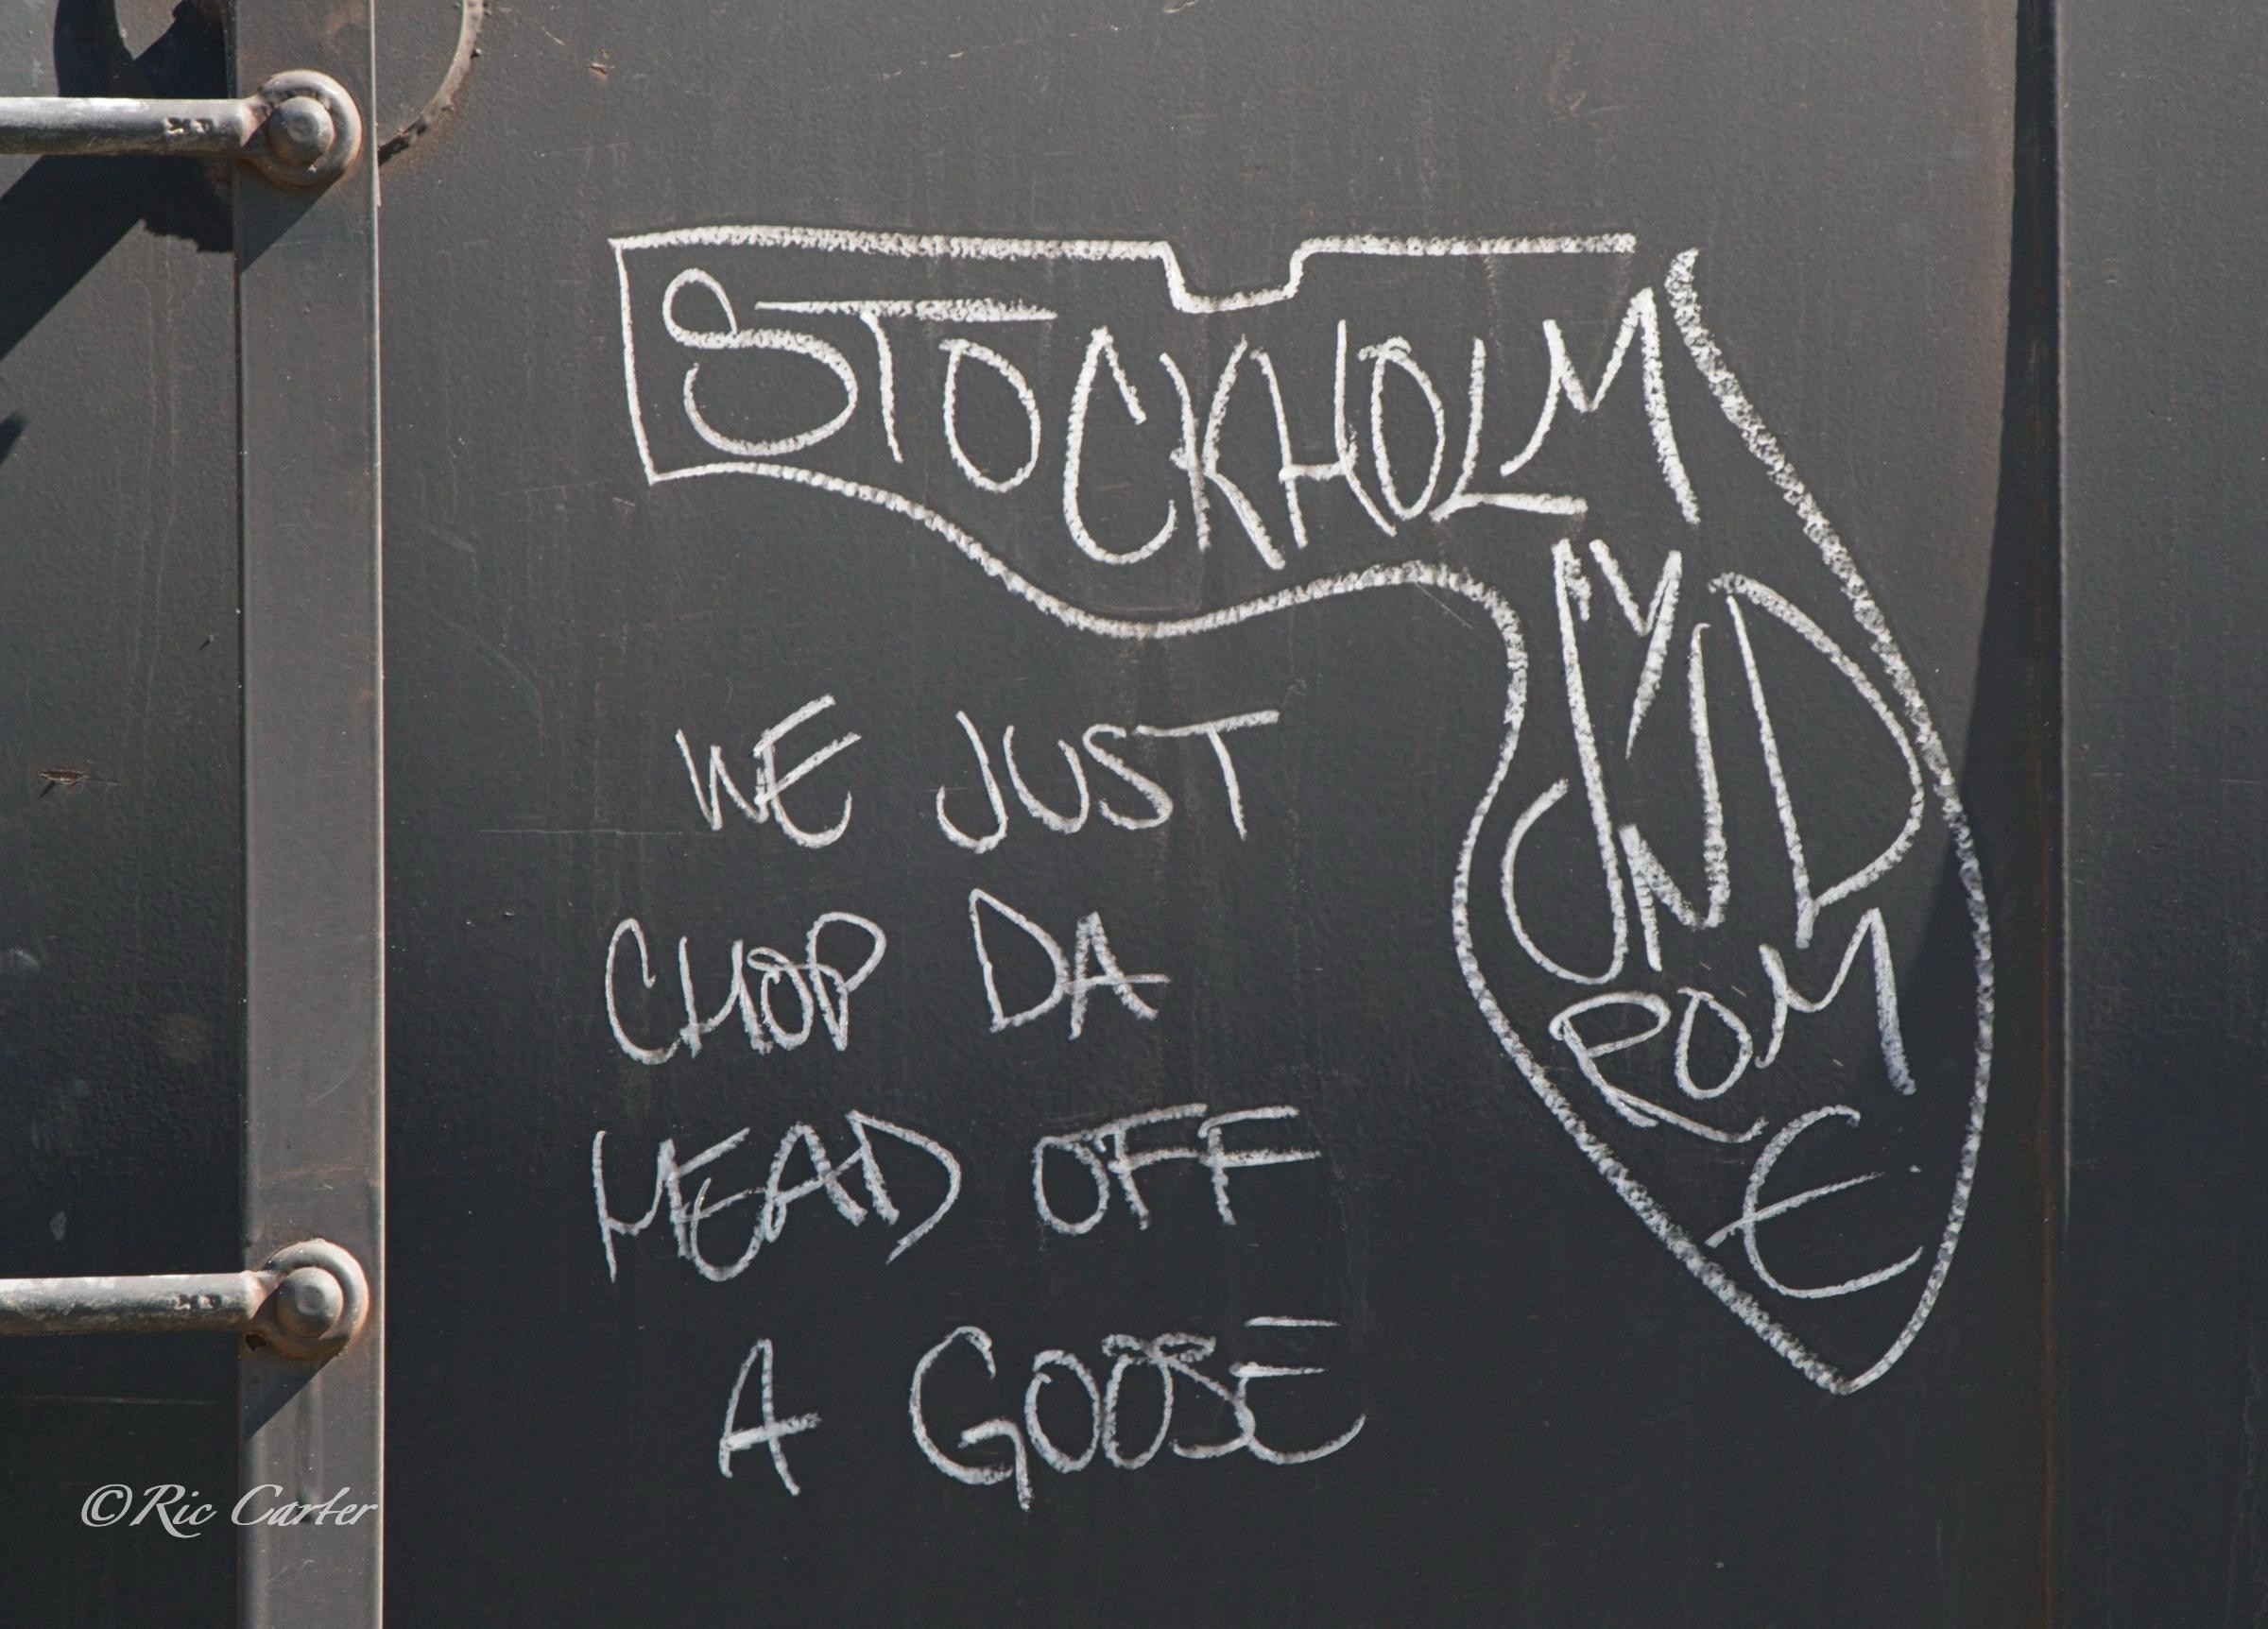 STOCKHOLM
SYND
ROM
E
WE JUST
CHOP DA
HEAD OFF
A GOOSE
©Ric Carter